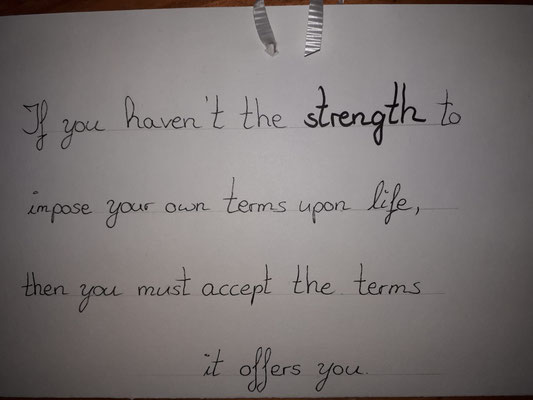 If you haven't the strength to
impose your own terms upon life,
then you must accept the terms
it offers you.